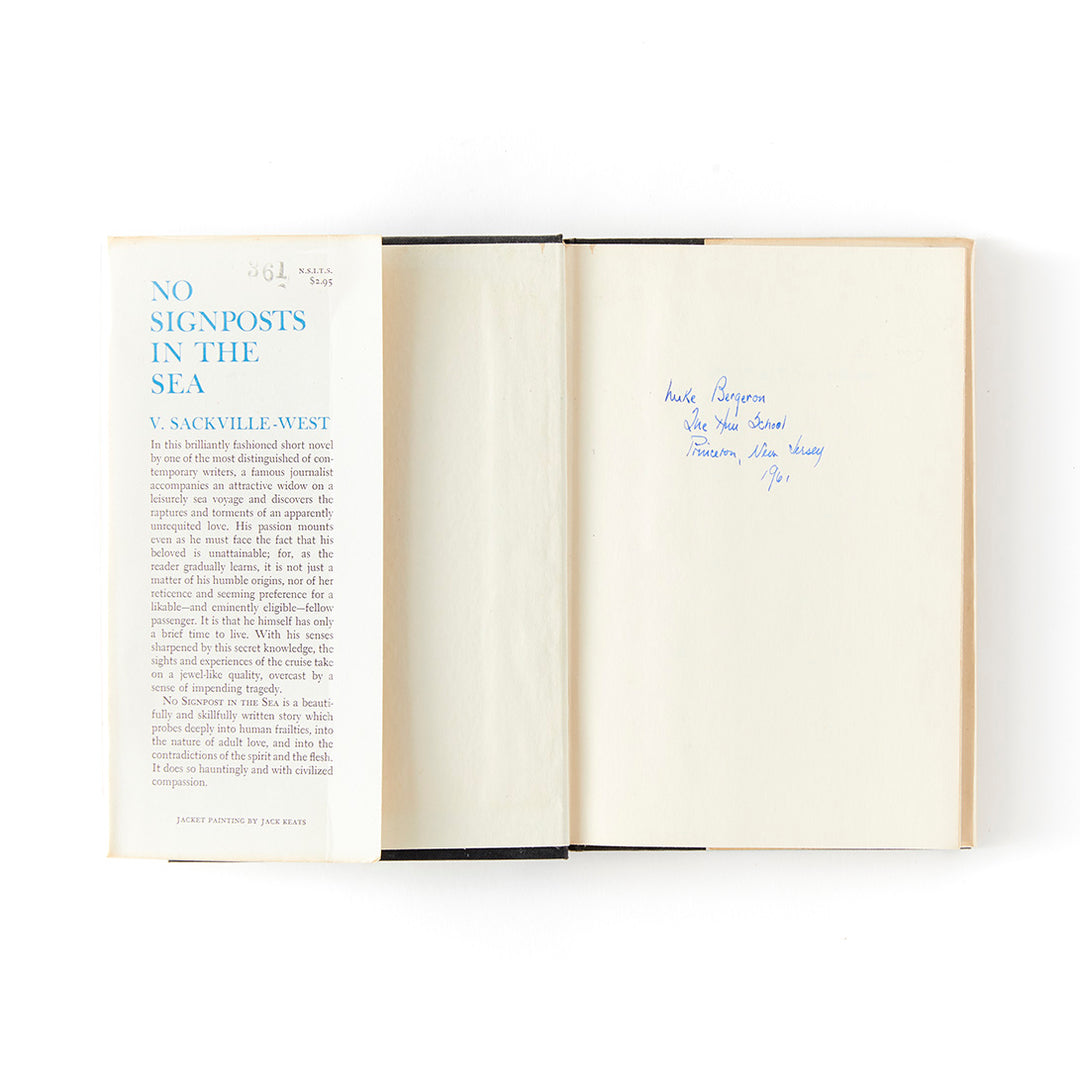 361
N.S.I.T.S.
$2.95
NO
SIGNPOSTS
IN THE
SEA
V. SACKVILLE-WEST
In this brilliantly fashioned short novel
by one of the most distinguished of con-
temporary writers, a famous journalist
accompanies an attractive widow on a
leisurely sea voyage and discovers the
raptures and torments of an apparently
unrequited love. His passion mounts
even as he must face the fact that his
beloved is unattainable; for, as the
reader gradually learns, it is not just a
matter of his humble origins, nor of her
reticence and seeming preference for a
likable—and eminently eligible—fellow
passenger. It is that he himself has only
a brief time to live. With his senses
sharpened by this secret knowledge, the
sights and experiences of the cruise take
on a jewel-like quality, overcast by a
sense of impending tragedy.
No Signpost in the Sea is a beauti-
fully and skillfully written story which
probes deeply into human frailties, into
the nature of adult love, and into the
contradictions of the spirit and the flesh.
It does so hauntingly and with civilized
compassion.
JACKET PAINTING BY JACK KEATS
Bergeron
The Hun School
Princeton, New Jersey
1961